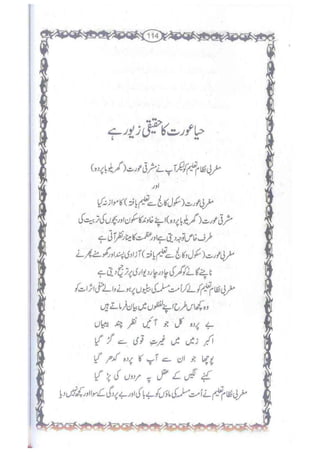 114
حیا عورت کا حقیقی زیور ہے
مغربی نظامِ تعلیم کو لیکر آپ نے مشرقی عورت (گھریلو با پردہ)
اور
مغربی عورت (سکول کالج سے تعلیم یافتہ) کا موازنہ کیا
مشرقی عورت (گھریلو با پردہ) اپنے خاوند کا سکون اور بچوں کی تربیت کی
طرف خاص توجہ دیتی ہے اور عظمت کا مینار نظر آتی ہے
مغربی عورت (سکول و کالج سے تعلیم یافتہ) آزادی پسند اور گھومنے پھرنے
ناچنے گانے کو گھر کی چادر چار دیواری پر ترجیح دیتی ہے
مغربی نظامِ تعلیم کو لے کر اُمت مسلمہ کی بیٹیوں پر ہونے والے منفی اثرات کو
وہ کچھ اس طرح اپنے لفظوں میں بیان فرماتے ہیں
بے پردہ کل جو آئیں نظر چند بیبیاں
اکبر زمیں میں غیرتِ قومی سے گڑ گیا
پوچھا جو ان سے آپ کا پردہ کدھر گیا
کہنے لگیں کے عقل پہ مردوں کی پڑ گیا
مغربی نظامِ تعلیم نے اُمت مسلمہ کی ماؤں کو بے باکی اور بے پردگی کے سوا اور کچھ نہیں دیا